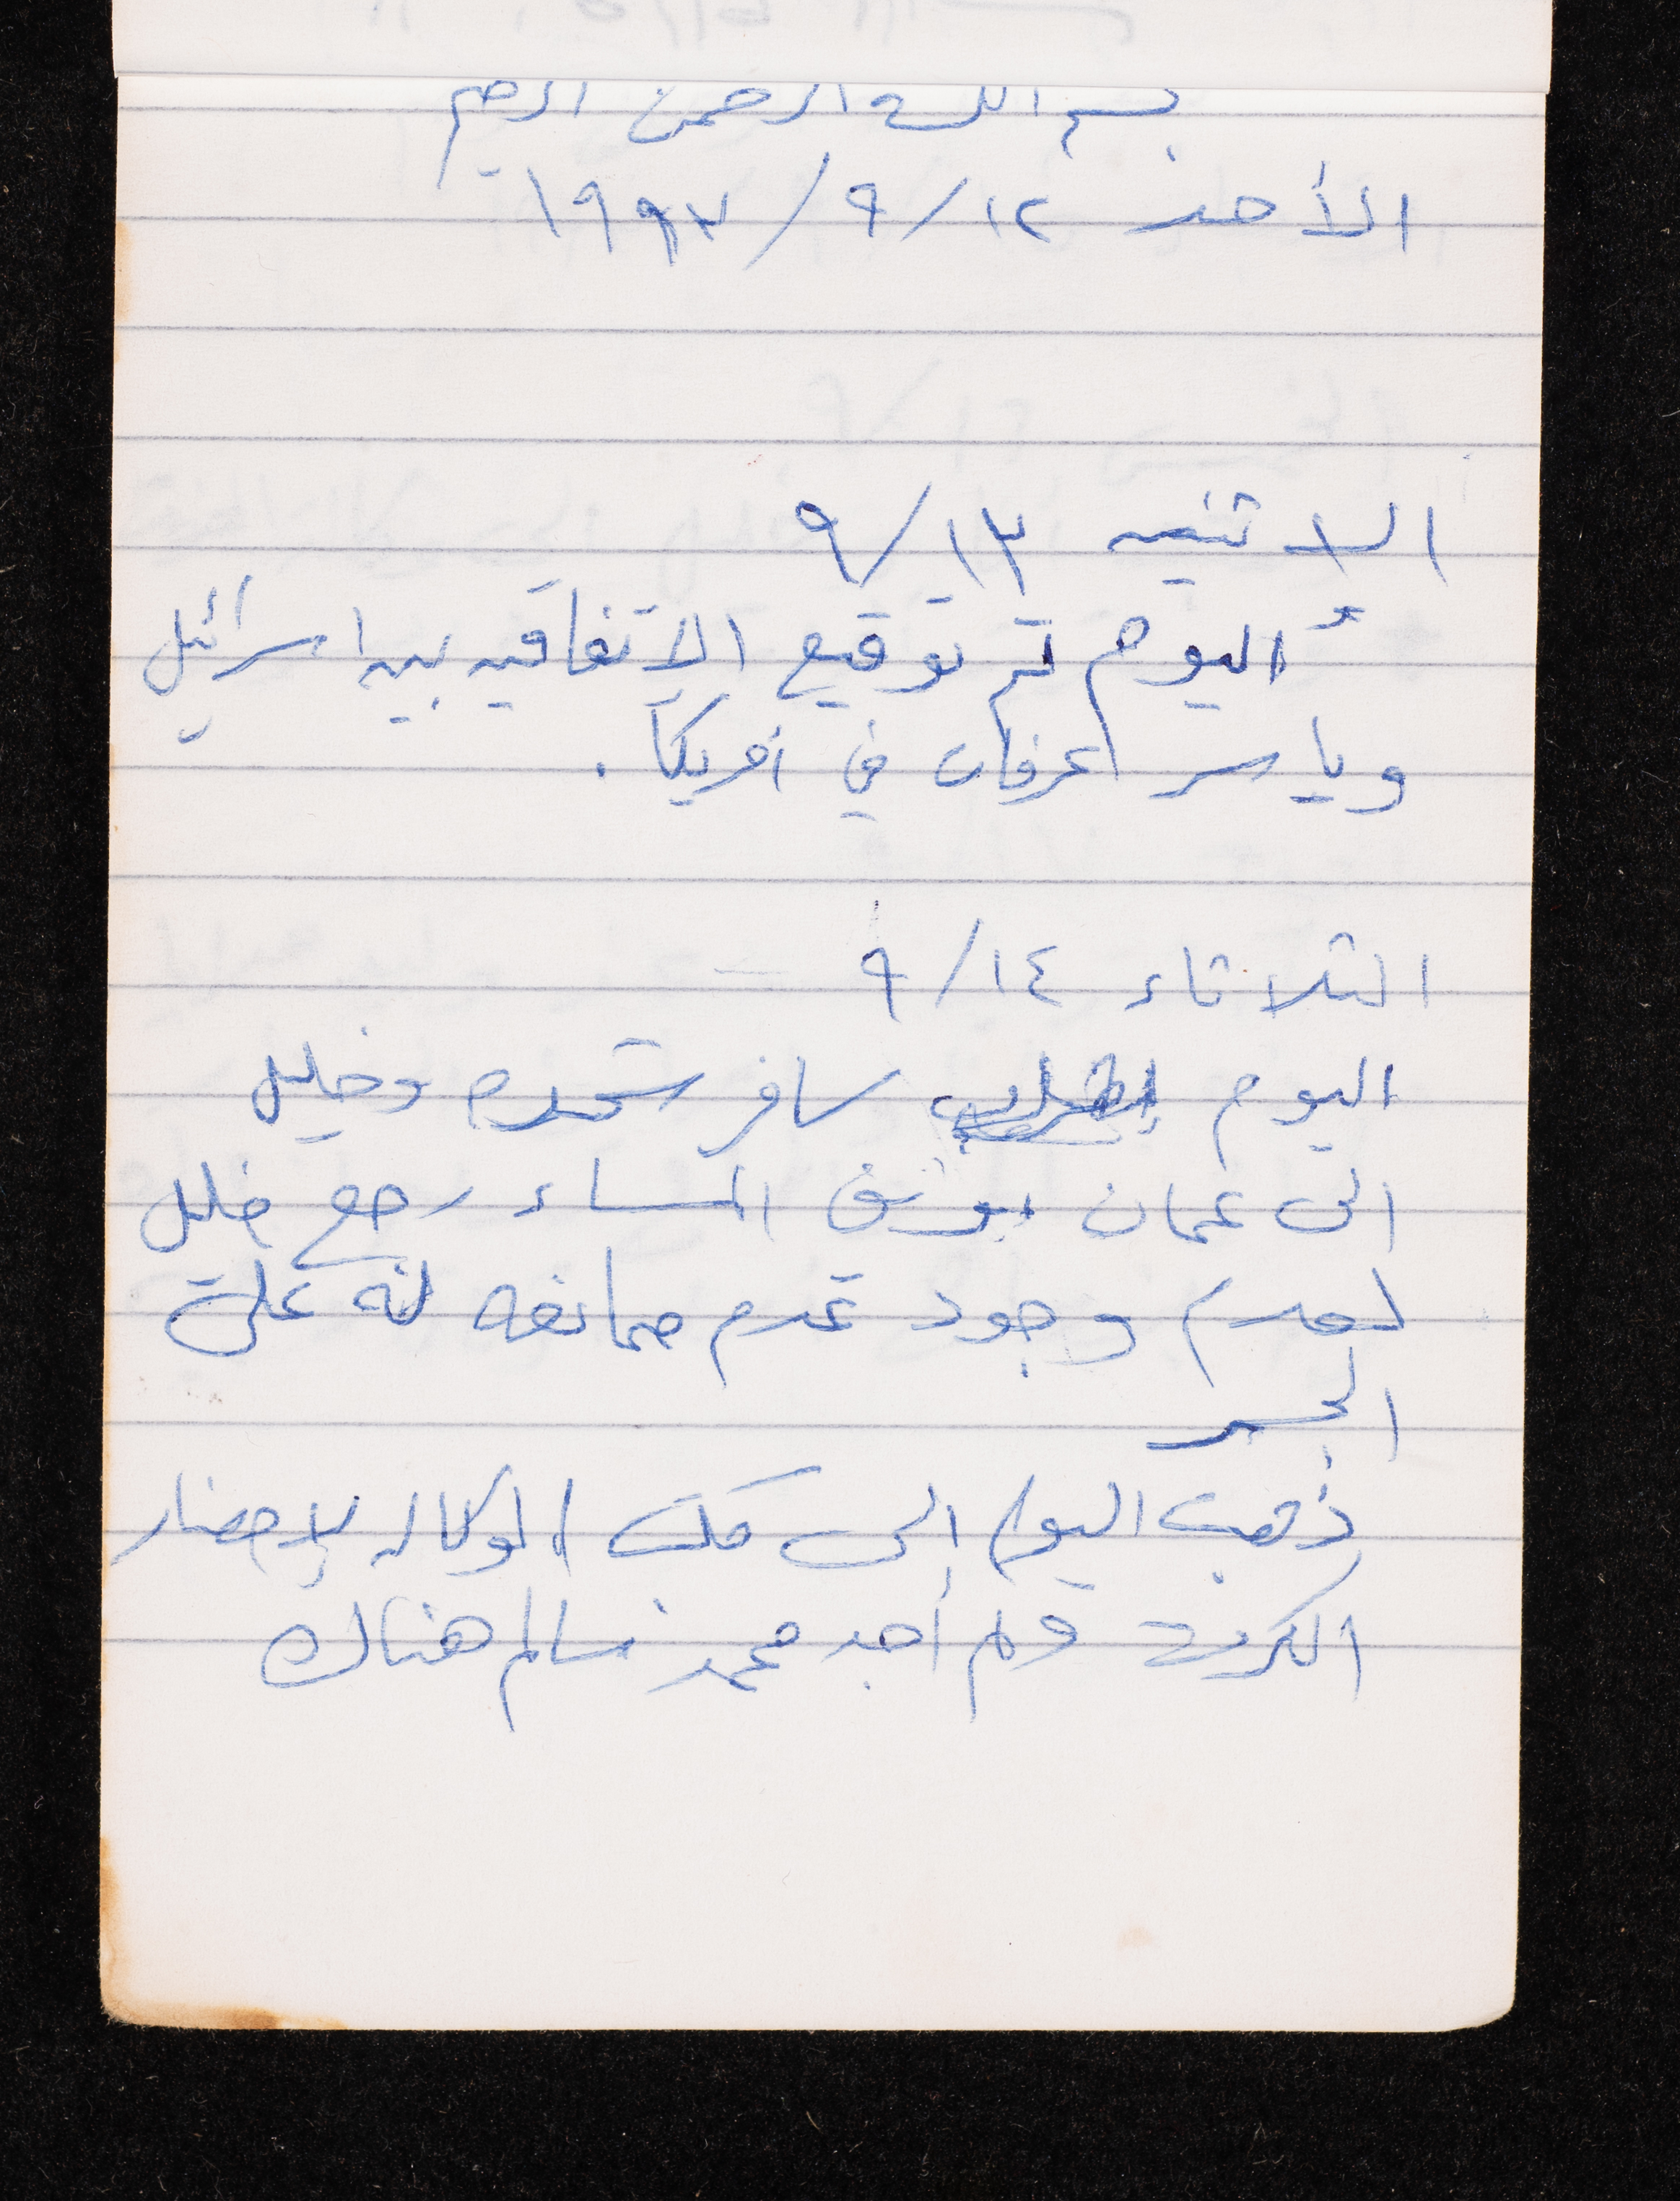 بسم الله الرحمن الرحيم
الأحد ١٢/٩/١٩٩٣
الاثنين ١٣/٩
اليوم تم توقيع الاتفاقيه بين اسرائيل
وياسر عرفات في أمريكا.
الثلاثاء ١٤/٩
اليوم سافر شحده وخليل
الى عمان وفي المساء رجع خليل
لعدم وجود عدم ممانعه له على
الجسر
ذهبت اليوم إلى مكتب الوكاله لإحضار
الكرت ولم أجد محمد سالم هناك